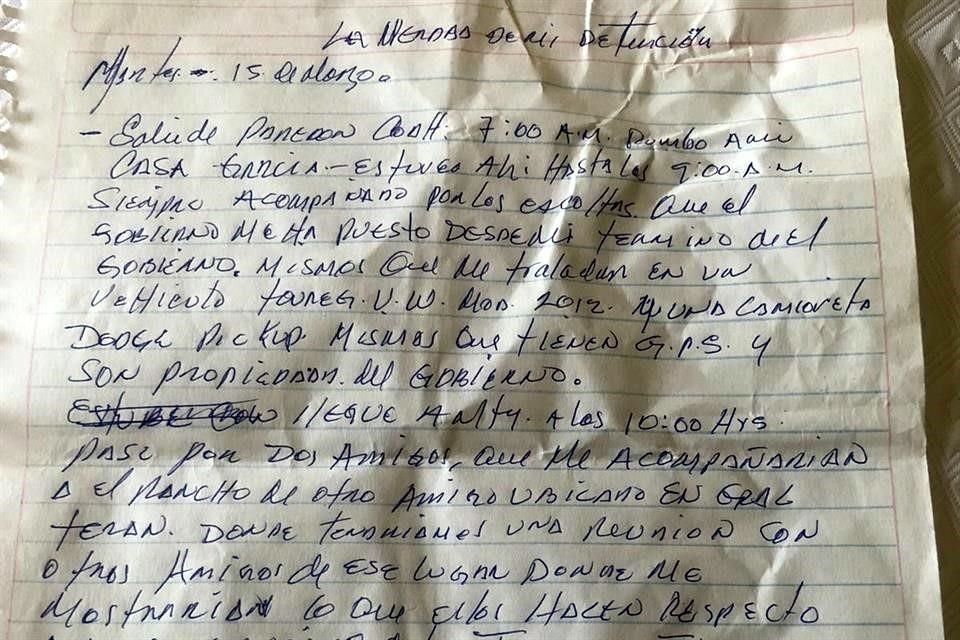 LA VERDAD DE MI DETENCIÓN
Martes. 15 de Marzo.
- Sali de PAREDON COAH. 7:00 A.M. Rumbo A mi
CASA GARCIA - ESTUVE AHI HASTA LAS 9:00 A.M.
SIEMPRE ACOMPAÑADO POR LOS ESCOLTAS. QUE EL
GOBIERNO ME HA PUESTO DESDE MI TERMINO DEL
GOBIERNO. MISMOS QUE ME trasladan EN UN
VEHICULO TOUREG. V.W. MOD. 2012. Y UNA CAMIONETA
DODGE PICKUP. MISMAS QUE TIENEN G.P.S. Y
SON PROPIEDAD. DEL GOBIERNO.
llEGUE A MTY. A las 10:00 Hrs.
PASE POR DOS AMIGOS, QUE ME ACOMPAÑARIAN
A el RANCHO DE OTRO AMIGO UBICADO EN GRAL
TERAN. DONDE TENDRIAMOS UNA REUNION CON
OTROS AMIGOS DE ESE LUGAR DONDE ME
MOSTRARIAN lo QUE ELLOS HACEN RESPECTO